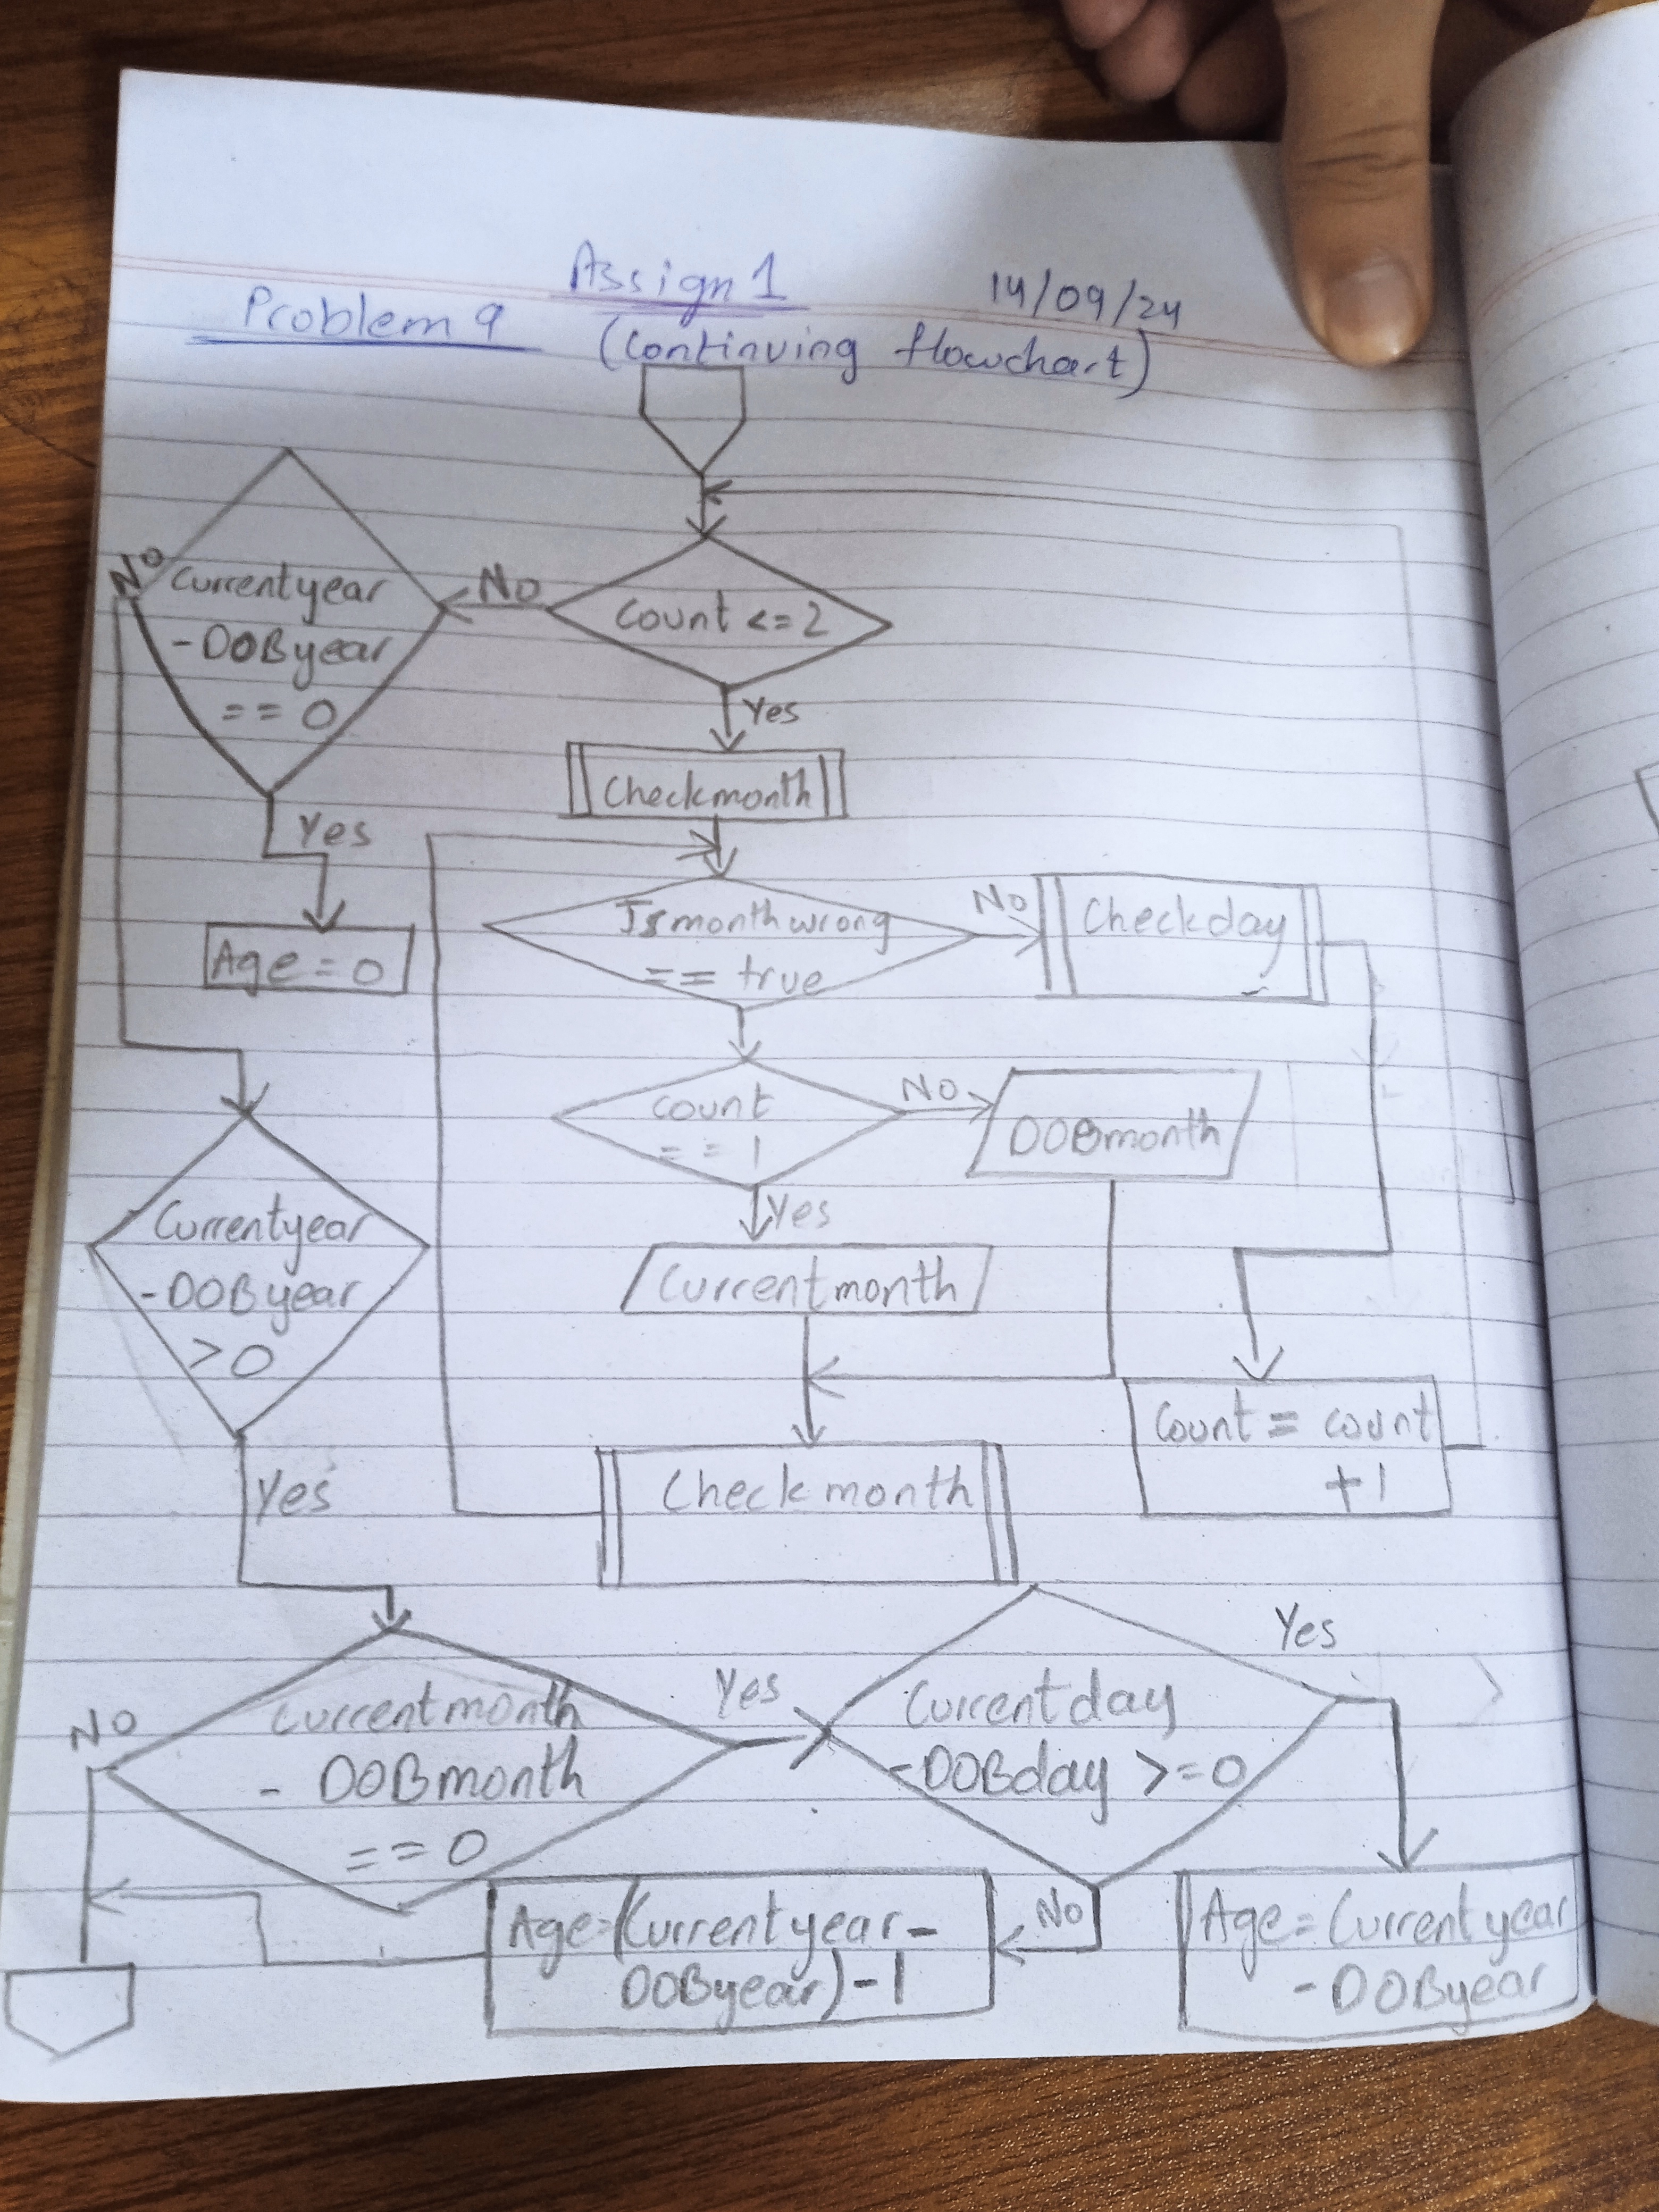 Assign 1
14/09/24
Problem 9
(Continuing flowchart)
Count <= 2
No
Yes
Currentyear
- DOByear
== 0
No
Yes
Age = 0
Checkmonth
Ismonthwrong
== true
No
Checkday
count
== 1
No
DOBmonth
Yes
Currentmonth
Count = count
+1
Checkmonth
Currentyear
- DOByear
> 0
Yes
Currentmonth
- DOBmonth
== 0
No
Yes
Currentday
- DOBday >= 0
Yes
No
Age = (Currentyear -
DOByear) - 1
Age = Currentyear
- DOByear